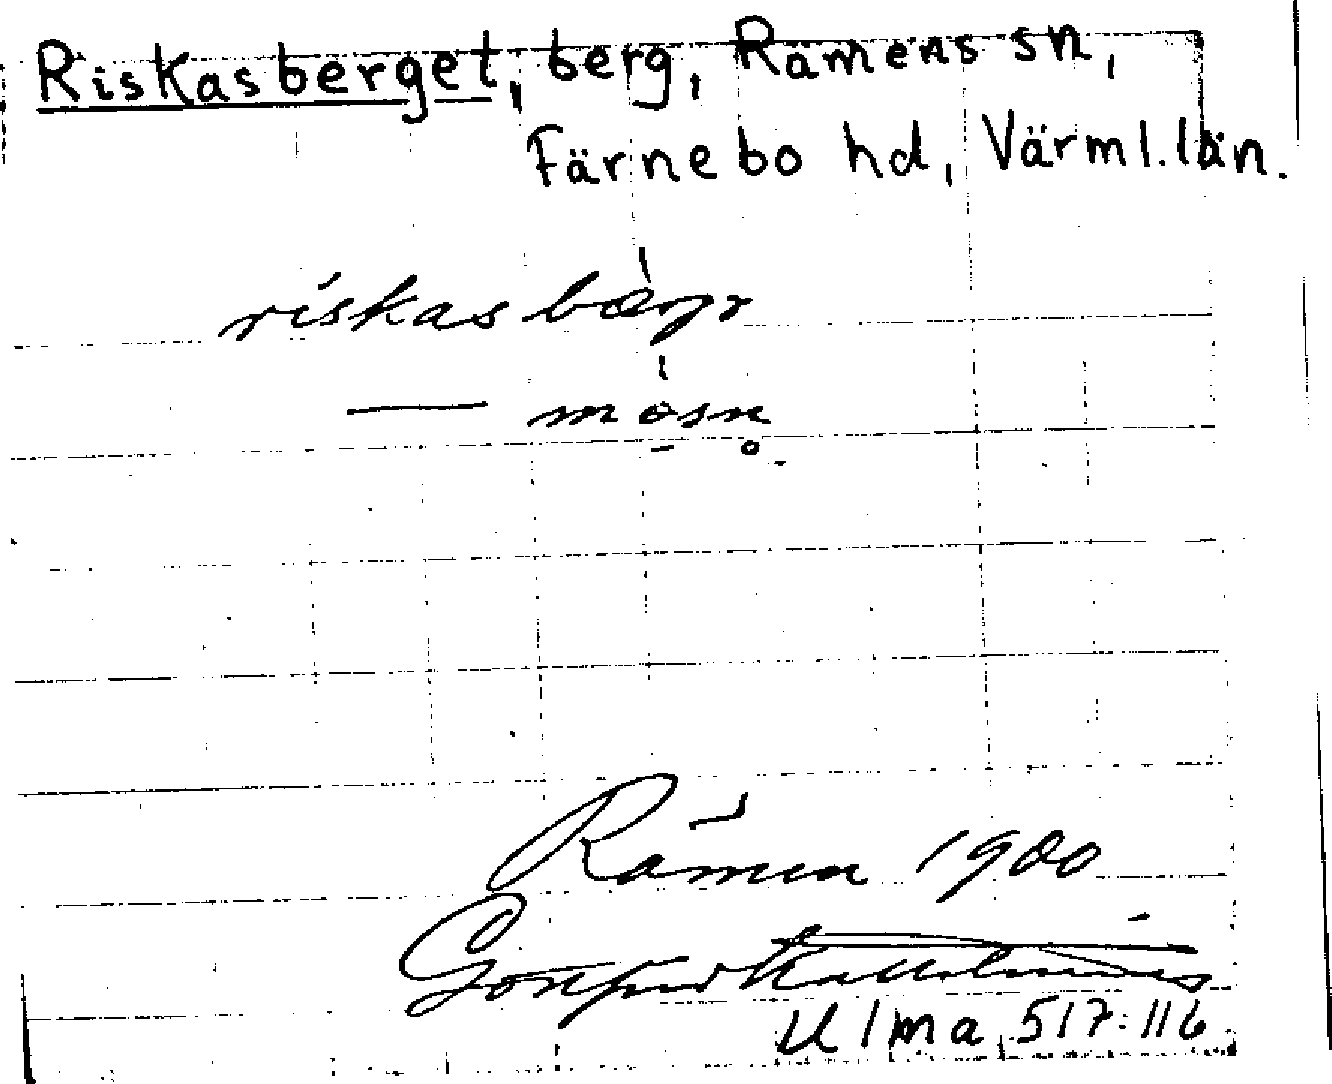 Riskasberget, berg, Rämens sn,
Färnebo hd, Värml. län.
riskasbærjr
— mósn̥
Rämen 1900
Gottfrid Kallstenius
Ulma 517:116